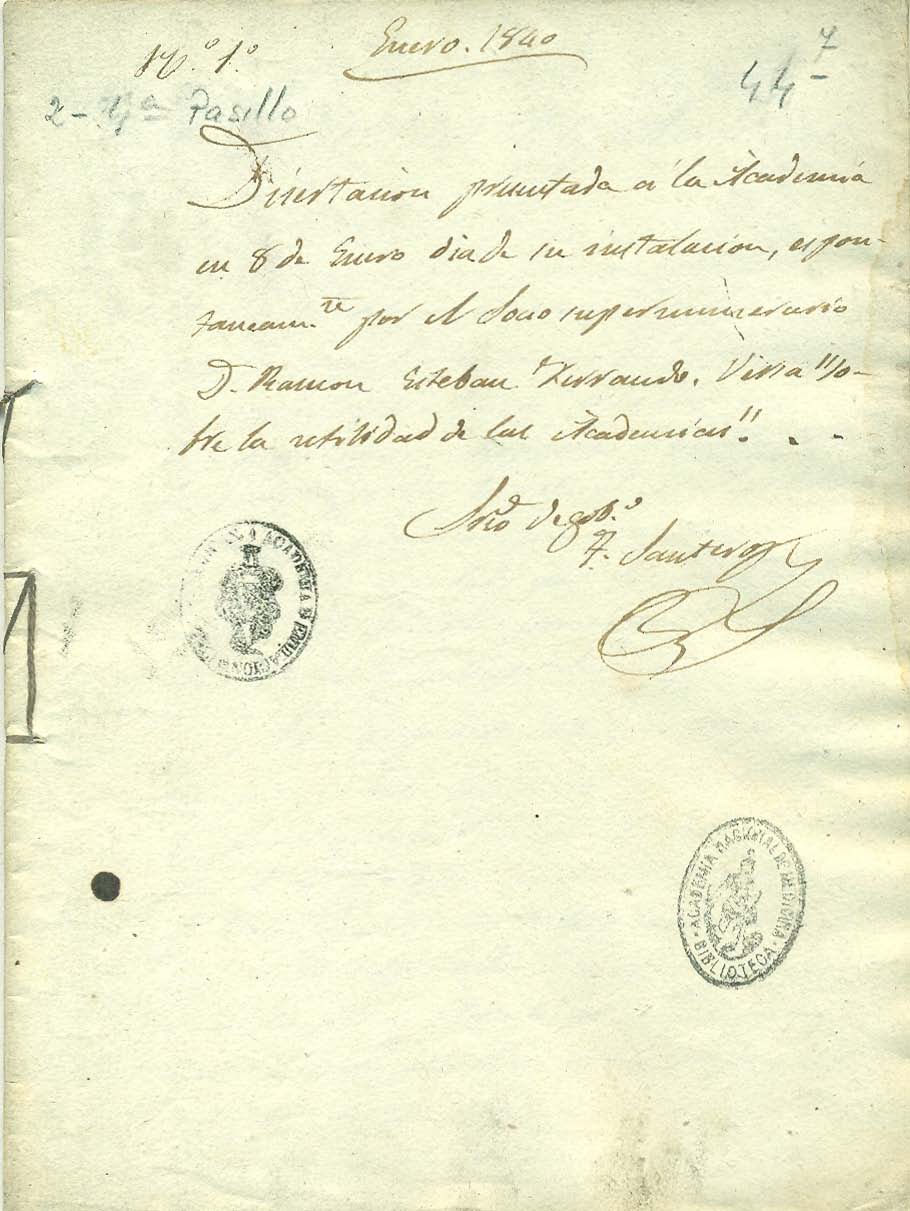 N.º 1.º
Enero. 1840
7
44
2 - 4ª Pasillo
Disertacion presentada á la Academia
en 8 de Enero dia de su instalacion, espon-
taneam.te por el Socio supernumerario
D. Ramon Esteban Ferrando. Versa "so-
bre la utilidad de las Academias".
Srio de gob.o
F. Santero
ACADEMIA
EMULACION
ACADEMIA NACIONAL DE MEDICINA
BIBLIOTECA